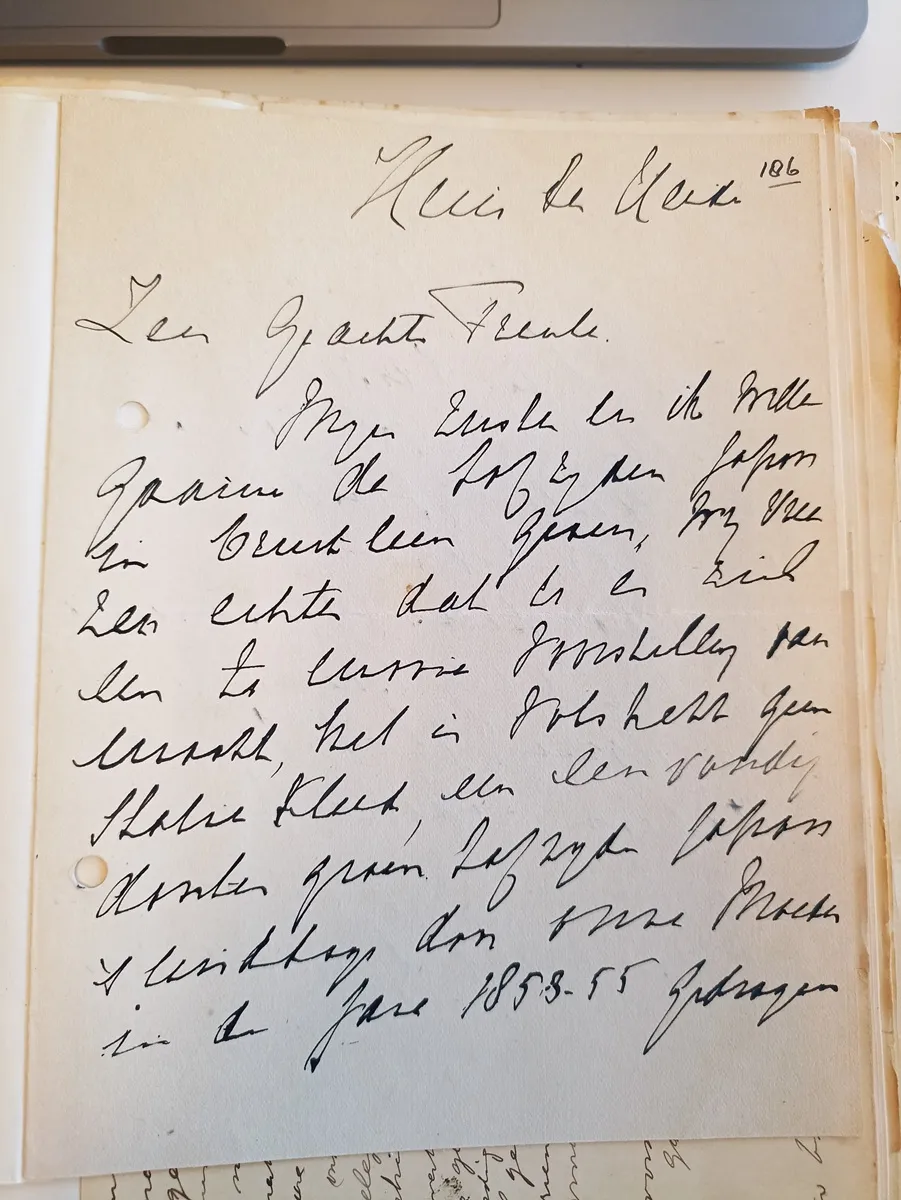 Huis ter Heide
186
Zeer Geachte Freule.
Myn Zuster en ik willen
gaarne de tafzyden japon
in bruikleen geven, wy vree
zen echter dat er er zich
een te mooie voorstelling van
maakt, het is volstrekt geen
Statie Kleed, een eenvoudig
donker groen tafzyde japon
's middags door onze Moeder
in de Jare 1853-55 gedragen